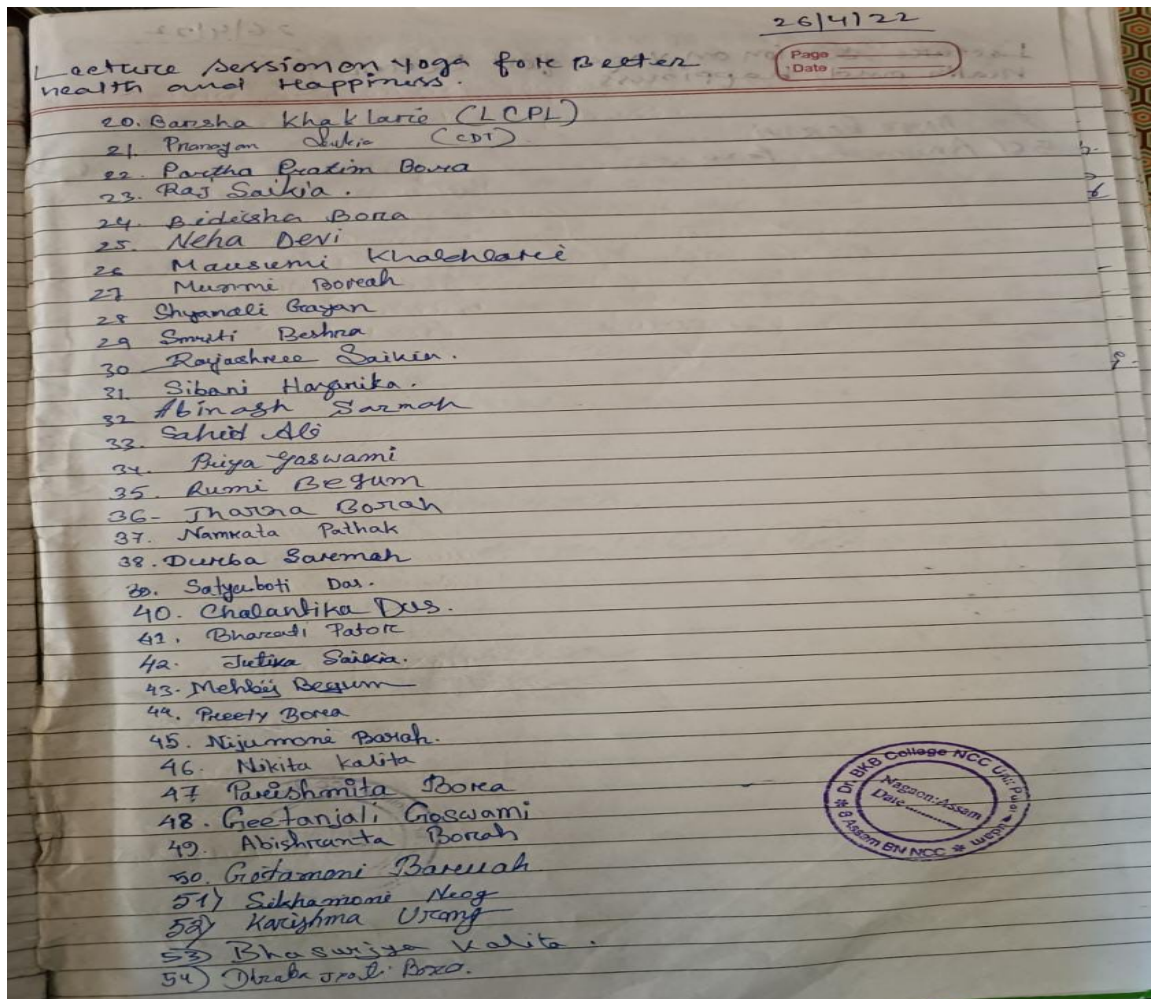 26/4/22
Page
Date
Lecture session on yoga fore Beeter
health and Happiness.
20. Barsha Khaklarie (LCPL)
21. Pranoyan (CDT)
22. Partha Pratim Bora
23. Raj Saikia.
24. Bideisha Bora
25. Neha Devi
26 Mausumi Khakhlarie
27 Munmi Boreah
28 Shyamali Gayan
29 Smriti Beshra
30 Rajashree Saikia.
31 Sibani Hazarika.
32 Abinash Sarmah
33. Sahid Ali
34. Priya Goswami
35. Rumi Begum
36- Jharna Borah
37. Namrata Pathak
38. Durba Saremah
39. Satyaboti Das.
40. Chalantika Das.
41. Bharati Patore
42. Jutika Saikia.
43. Begum
44. Preety Borea
45. Nijumoni Barah.
46. Nikita Kalita
47 Pareishmita Borea
48. Geetanjali Goswami
49. Abishranta Boreah
50. Gitamoni Bareuah
51) Sikhamoni Neog
52) Karishma Urang
53) Bhasurjya Kalita.
54) Bora.
Dr. BKB College NCC Unit Puranigudam
Nagaon: Assam
Date
8 Assam BN NCC